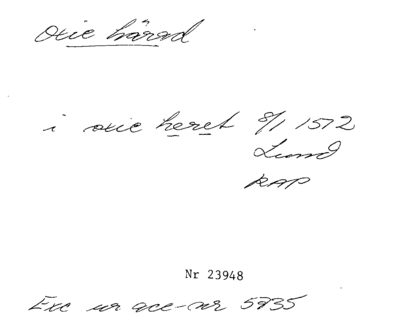 Oxie härad
i oxie heret 8/1 1572
Lund
RAP
Nr 23948
Exc ur acc-nr 5735